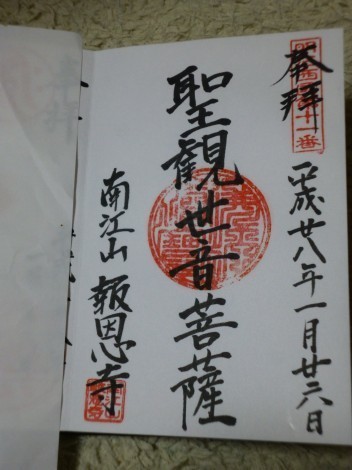 奉拝
平成廿八年一月廿六日
聖観世音菩薩
南江山 報恩寺